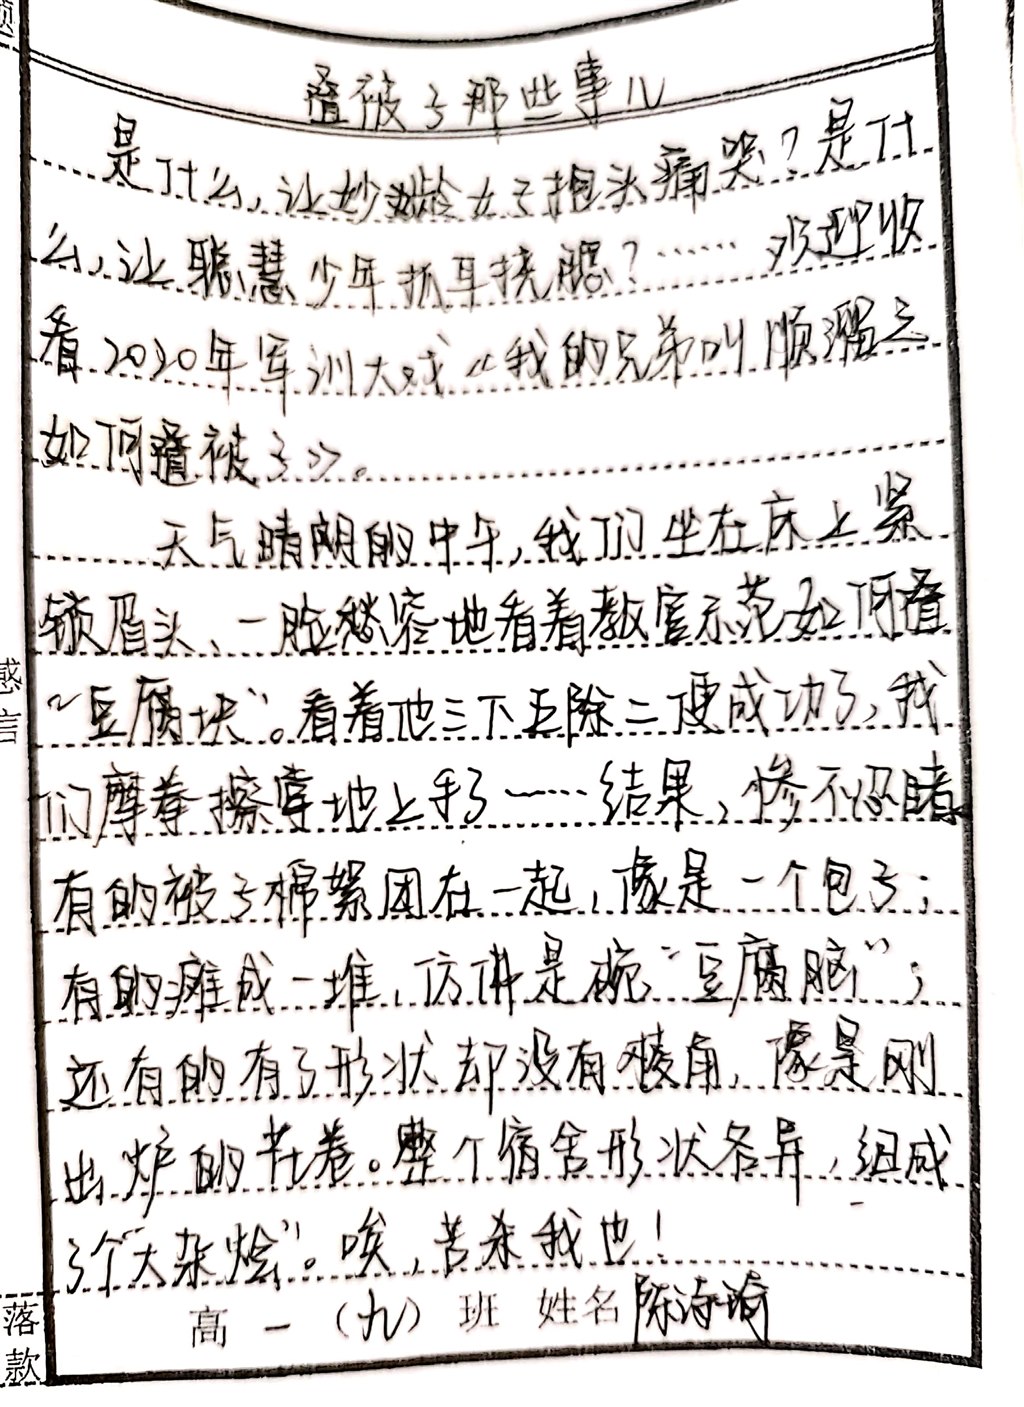 叠被子那些事儿
是什么,让妙龄女子抱头痛哭?是什
么,让聪慧少年抓耳挠腮?……欢迎收
看2020年军训大戏《我的兄弟叫顺溜之
如何叠被子》。
天气晴朗的中午,我们坐在床上紧
锁眉头、一脸愁容地看着教官示范如何叠
“豆腐块”。看着他三下五除二便成功了,我
们摩拳擦掌地上手了……结果,惨不忍睹。
有的被子棉絮团在一起,像是一个包子;
有的瘫成一堆,仿佛是碗“豆腐脑”;
还有的有了形状却没有棱角,像是刚
出炉的花卷。整个宿舍形状各异,组成
了个“大杂烩”。唉,苦杀我也!
高一(九)班 姓名 陈诗瑜
感
言
落
款